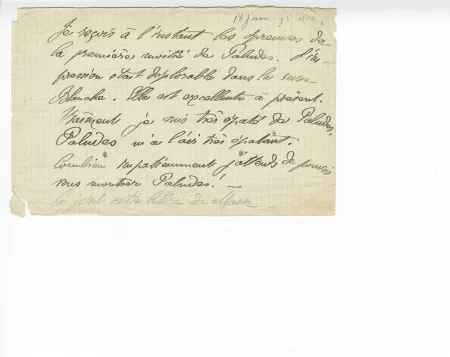 18 janv. 95
Je reçois à l'instant les épreuves de
la première moitié de Paludes. L'im-
pression était déplorable dans la revue
Blanche. Elle est excellente à présent.
Vraiment je suis très épaté de Paludes.
Paludes m'a l'air très épatant.
Combien impatiemment j'attends de pouvoir
vous montrer Paludes! —
Ci joint cette lettre de